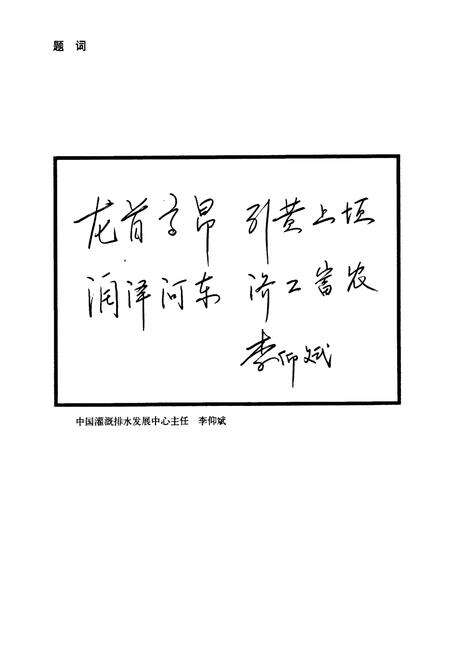 题 词
龙首高昂 引黄上垣
润泽河东 济工富农
李仰斌
中国灌溉排水发展中心主任 李仰斌